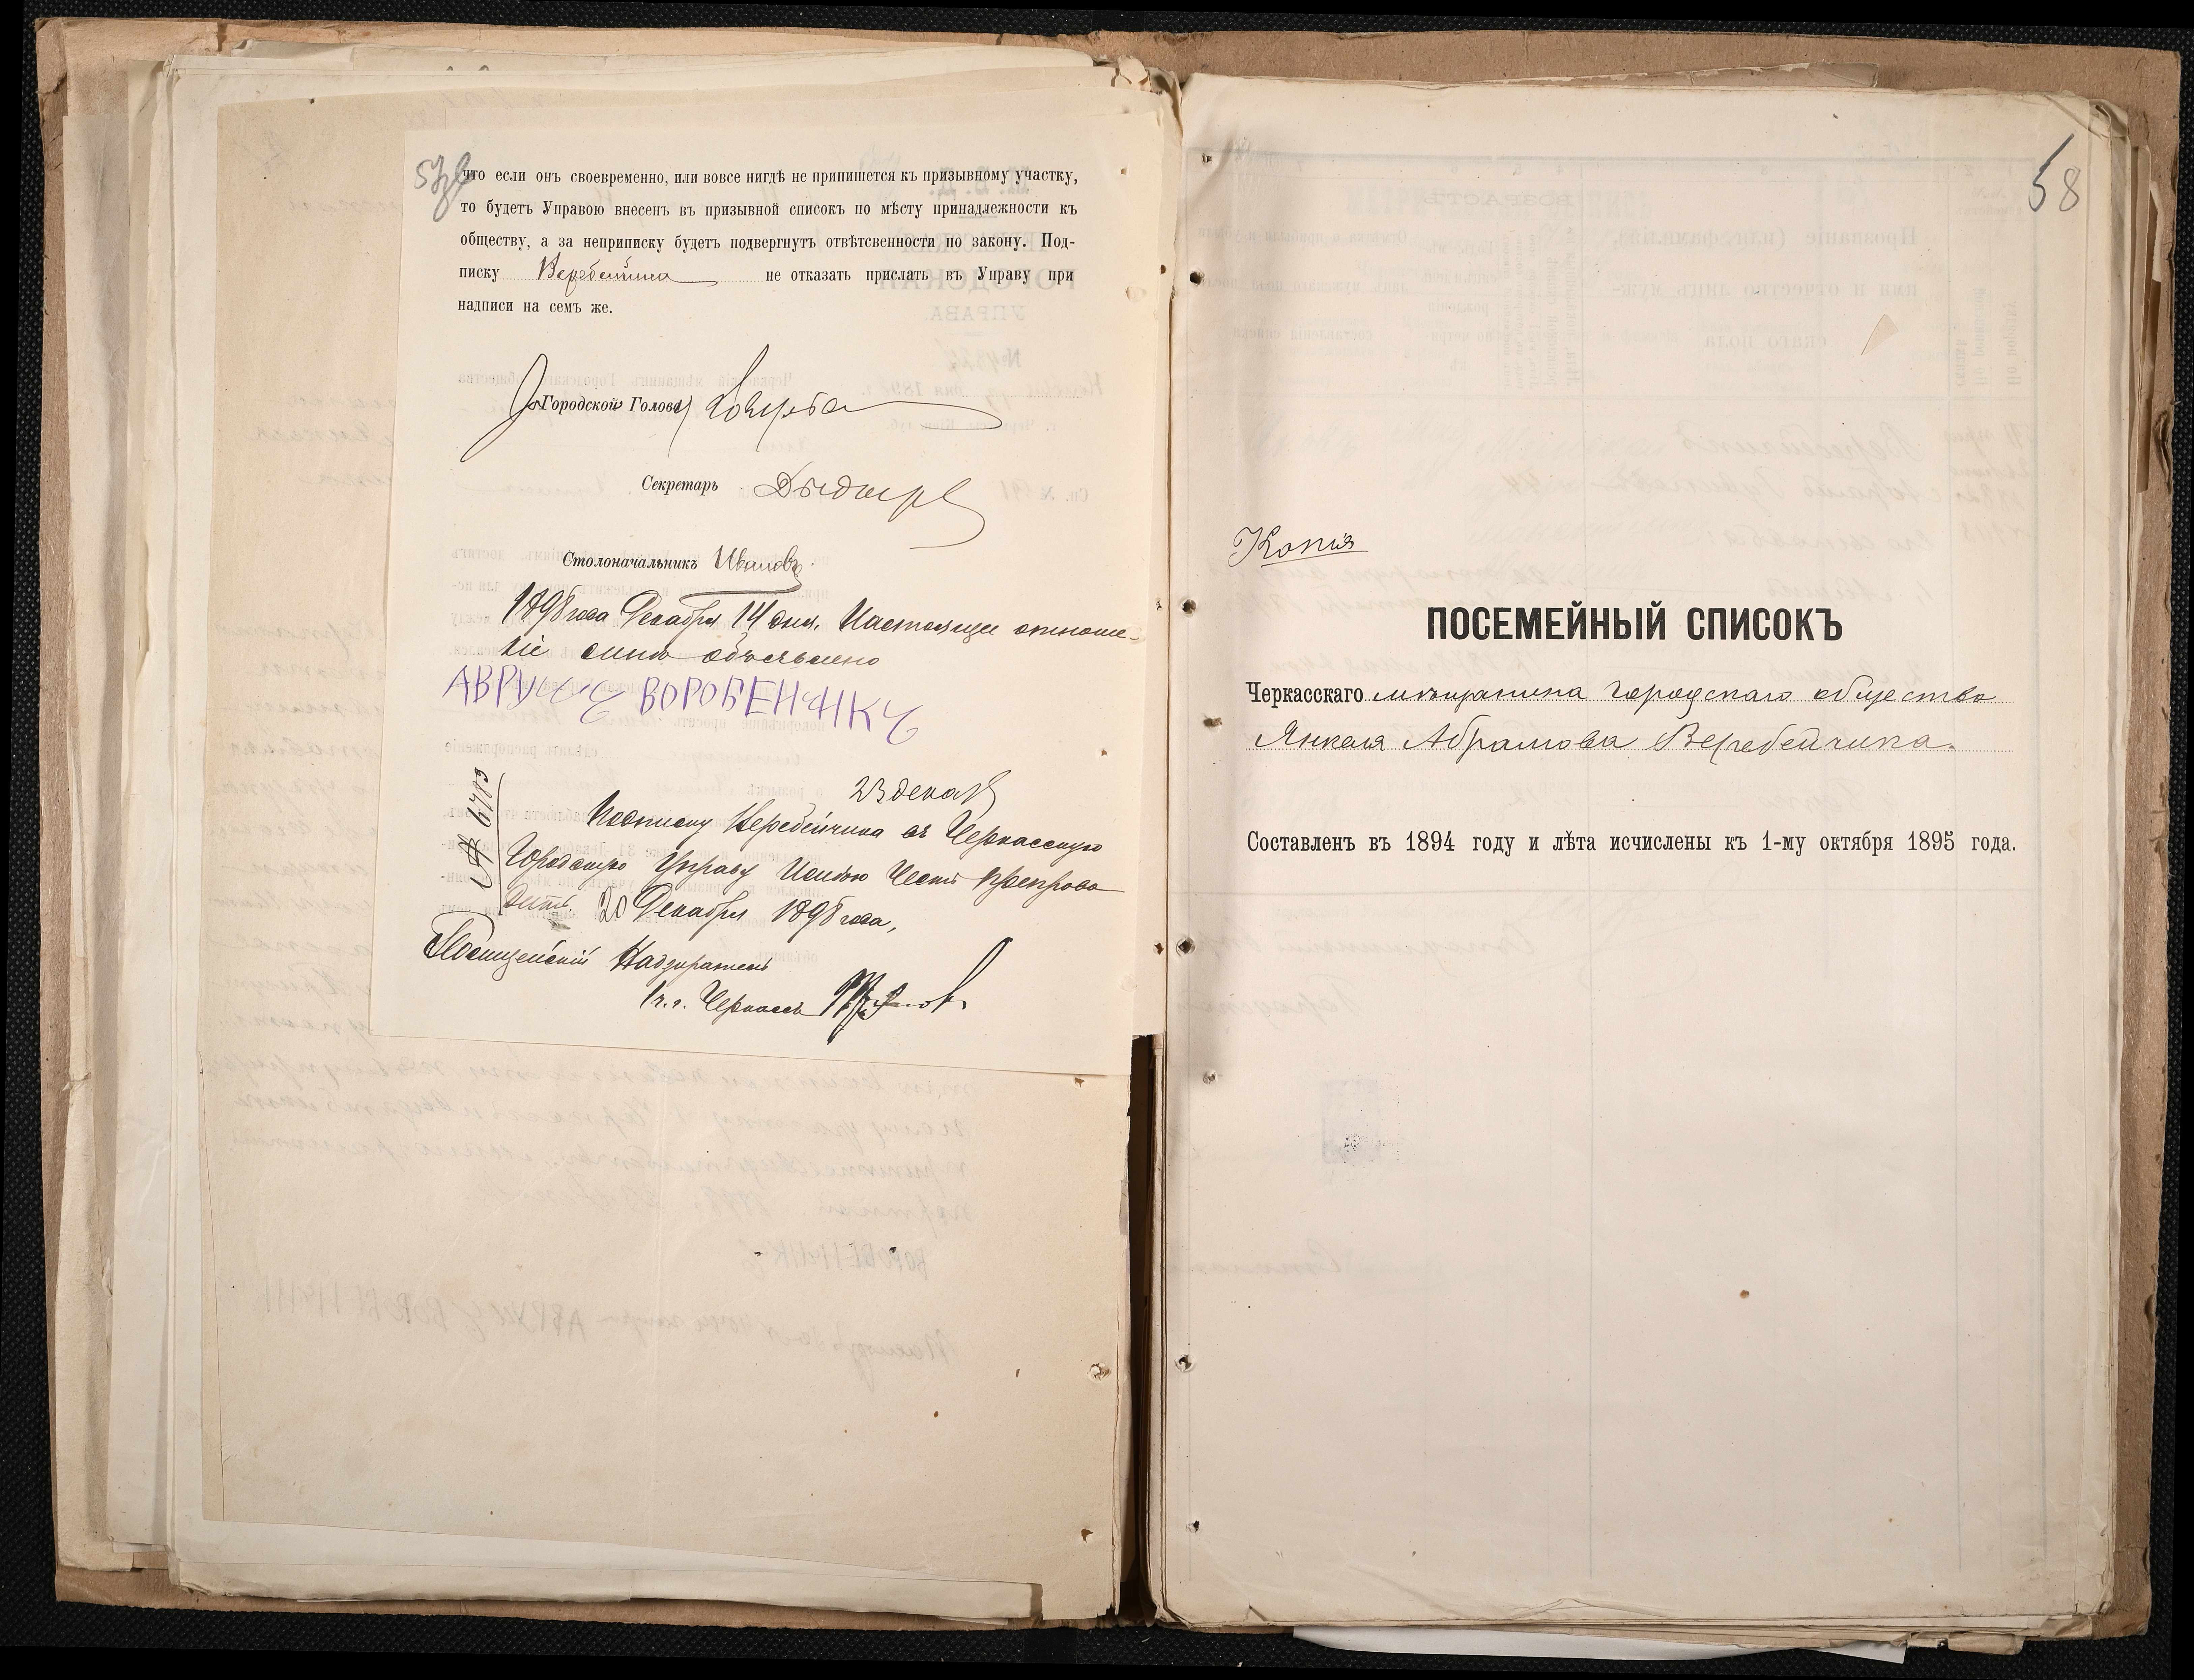 57об
что если онъ своевременно, или вовсе нигдѣ не припишется къ призывному участку,
то будетъ Управою внесенъ въ призывной списокъ по мѣсту принадлежности къ
обществу, а за неприписку будетъ подвергнутъ отвѣтсвенности по закону. Под-
писку Веребейчика не отказать прислать въ Управу при
надписи на семъ же.
Городской Голова
Секретарь
Столоначальникъ Ивановъ
1898 года Декабря 14 дня. Настоящее отноше-
ніе мнѣ объявлено
АВРУМЧ ВОРОБЕНЧІКЧ
23 декаб
№ 6783
Подписку Веребейчика въ Черкасскую
Городскую Управу Имѣю Честь препрово
дить. 20 Декабря 1898 года,
Полицейскій Надзиратель
1 ч. г. Черкассъ
58
Копія
ПОСЕМЕЙНЫЙ СПИСОКЪ
Черкасскаго мѣщанина городскаго общества
Янкеля Абрамова Веребейчика.
Составленъ въ 1894 году и лѣта исчислены къ 1-му октября 1895 года.